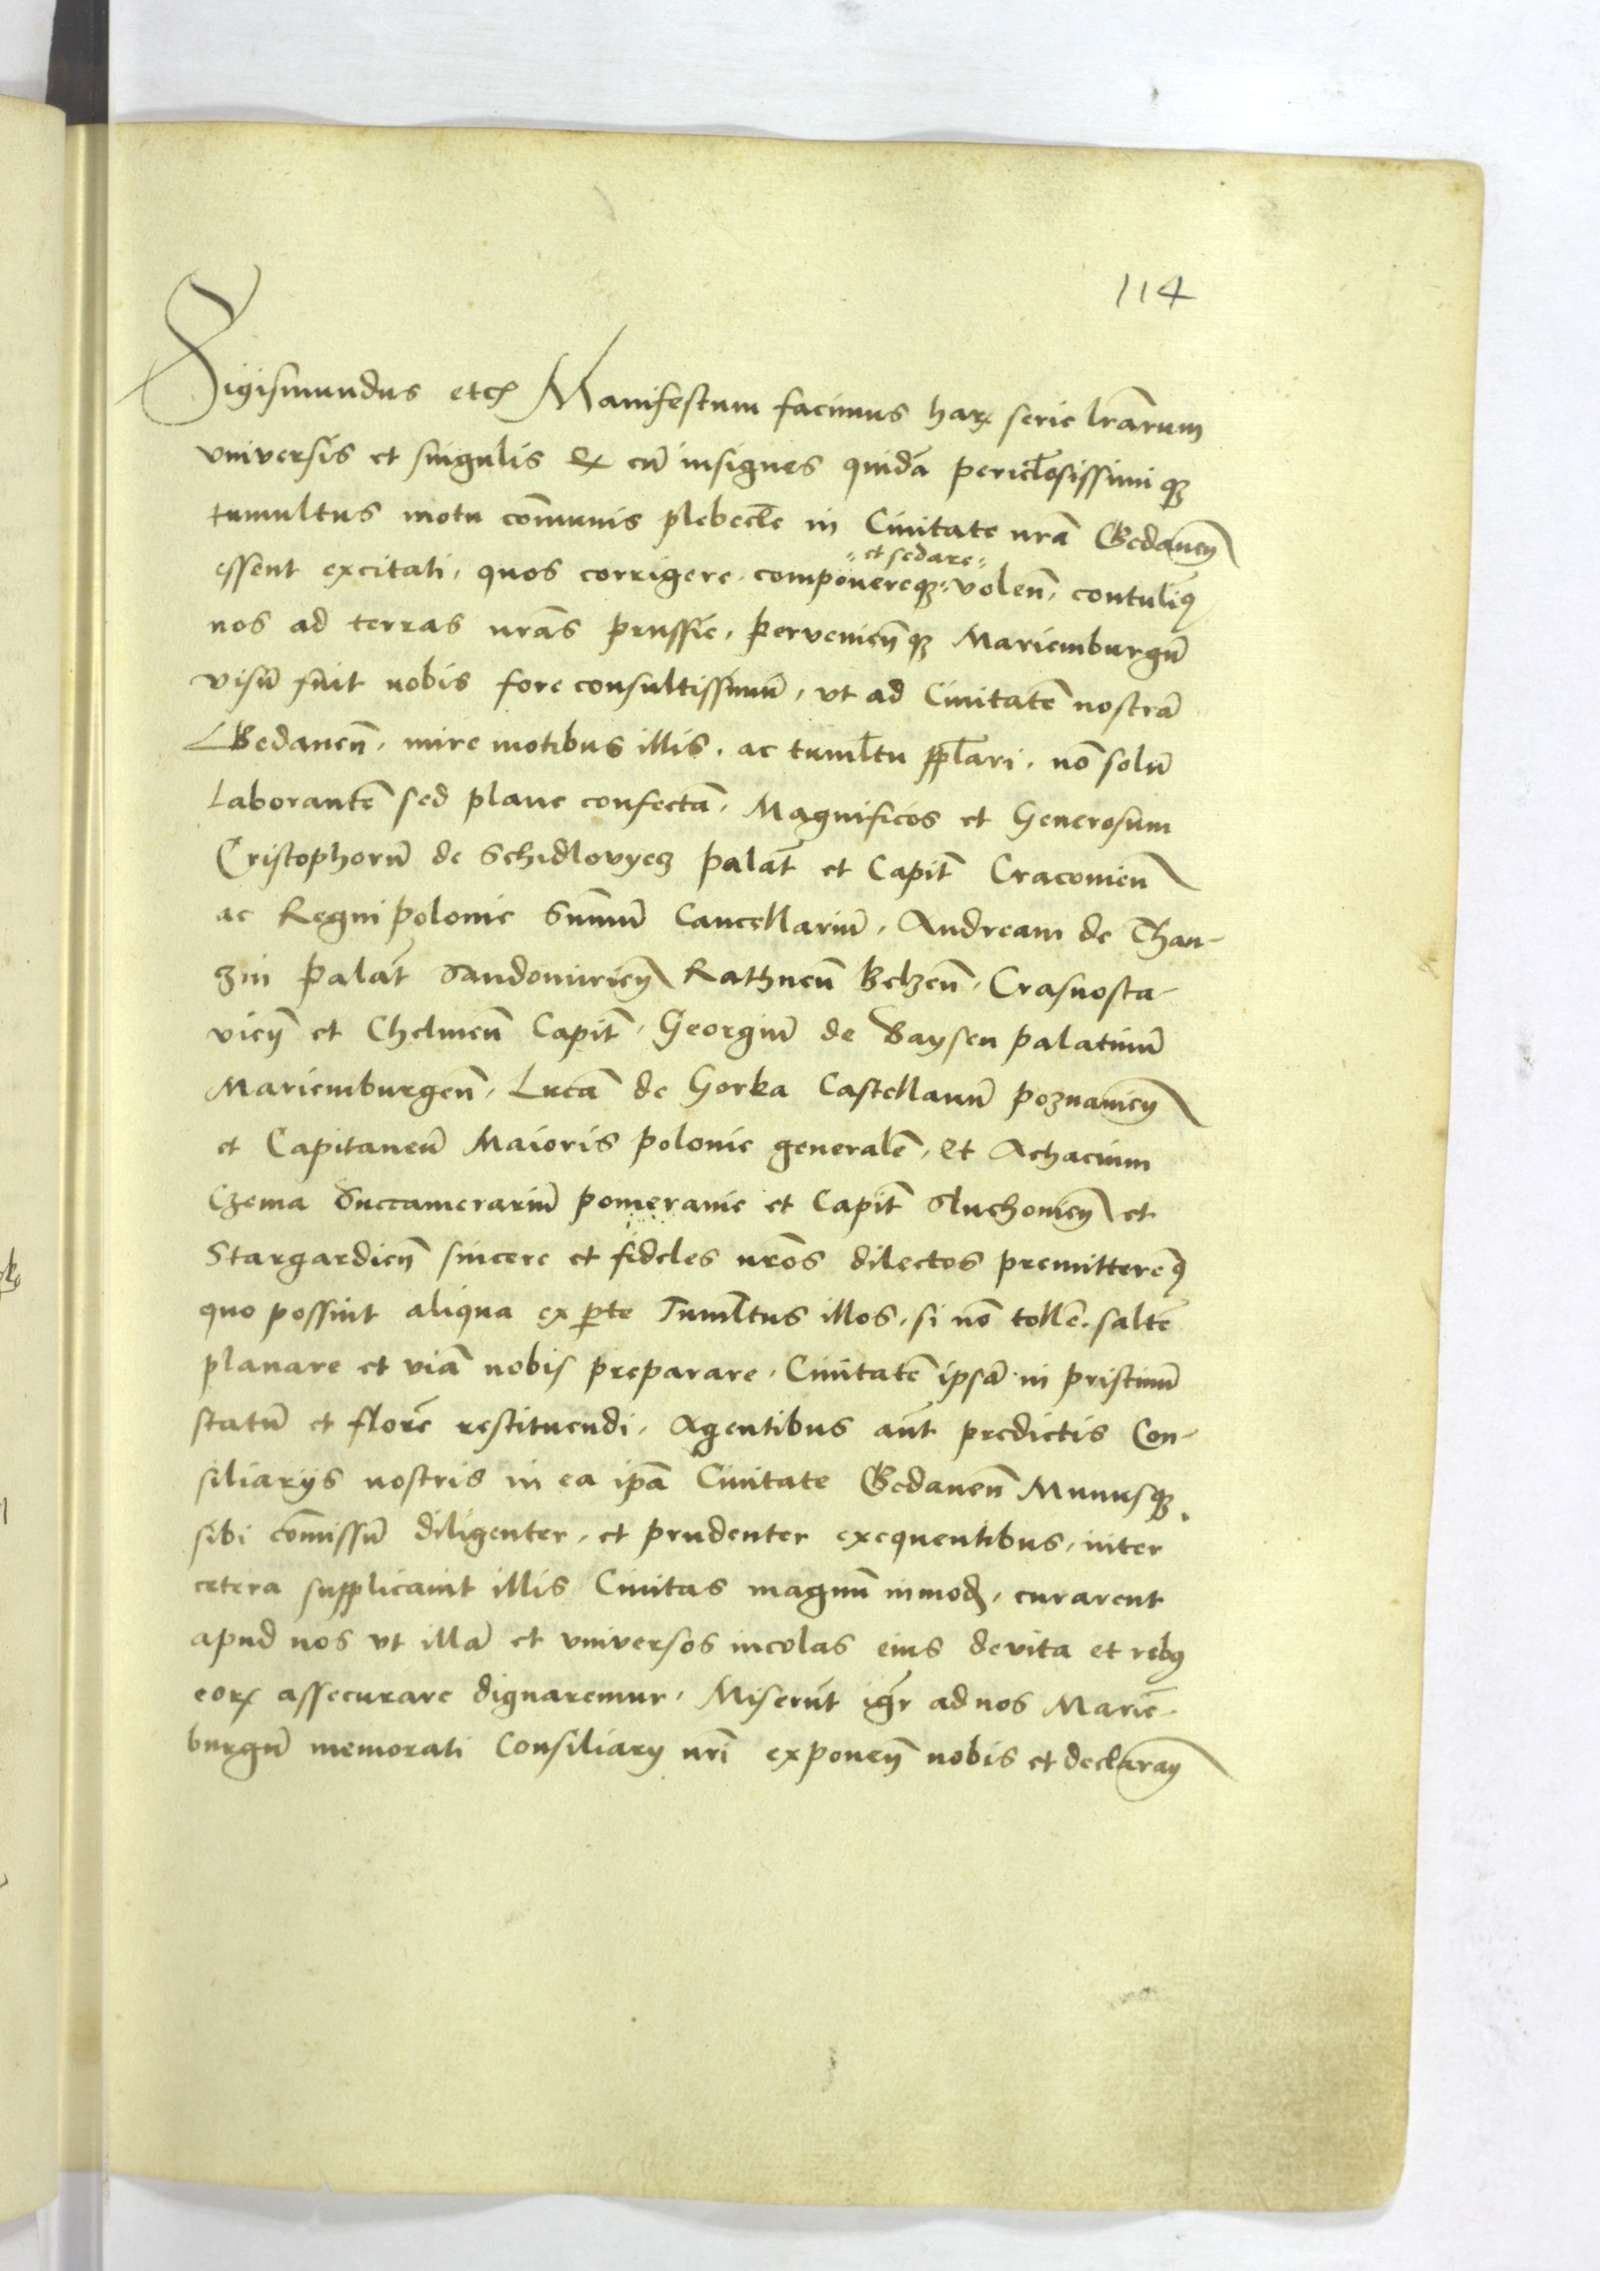 114
Sigismundus etcȝ Manifestum facimus harꝝ serie lr̄arum
vniversis et singulis Qꝫ cū insignes quidā pericl̄osissimiqꝫ
tumultus motu com̄unis plebecl̄e in Ciuitate nr̄a Gedaneñ
et sedare
essent excitati, quos corrigere componereqꝫ voleñ, contulimꝰ
nos ad terras nr̄as prussie, pervenieñqꝫ Mariemburgū
visū fuit nobis fore consultissimū, vt ad Ciuitatē nostrā
Gedaneñ, mire motibus illis, ac tuml̄tu ppl̄ari, nō solū
Laborantē sed plane confectā, Magnificos et Generosum
Cristophorū de Schidlovyeȝ palat̄ et Capit̄ Cracovieñ
ac Regni polonie Sum̄ū Cancellariū, Andream de Than-
zin palat̄ Sandomirieñ Rathneñ Belzeñ, Crasnosta-
vieñ et Chelmeñ Capit̄, Georgiū de Baysen palatinū
Mariemburgeñ, Lucā de Gorka Castellanū poznanieñ
et Capitaneū Maioris polonie generalē, Et Achacium
Czema Succamerariū pomeranie et Capit̄ Sluchovieñ et
Stargardieñ sincere et fideles nr̄os dilectos premitteremꝰ
quo possint aliqua ex ꝑte Tuml̄tus illos, si nō tollē, saltē
planare et viā nobis preparare, Ciuitatē ipsā in pristinū
statū et florē restituendi, Agentibus aūt predictis Con-
siliarijs nostris in ea ip̄a Ciuitate Gedaneñ Munusqꝫ
sibi com̄issū diligenter, et prudenter exequentibus, inter
cetera supplicauit illis Ciuitas magnū inmodꝫ, curarent
apud nos vt illā et vniversos incolas eius de vita et rebꝰ
eorꝝ assecurare dignaremur, Miserūt igr̄ ad nos Mariē-
burgū memorati Consiliarij nr̄i exponeñ nobis et declarañ